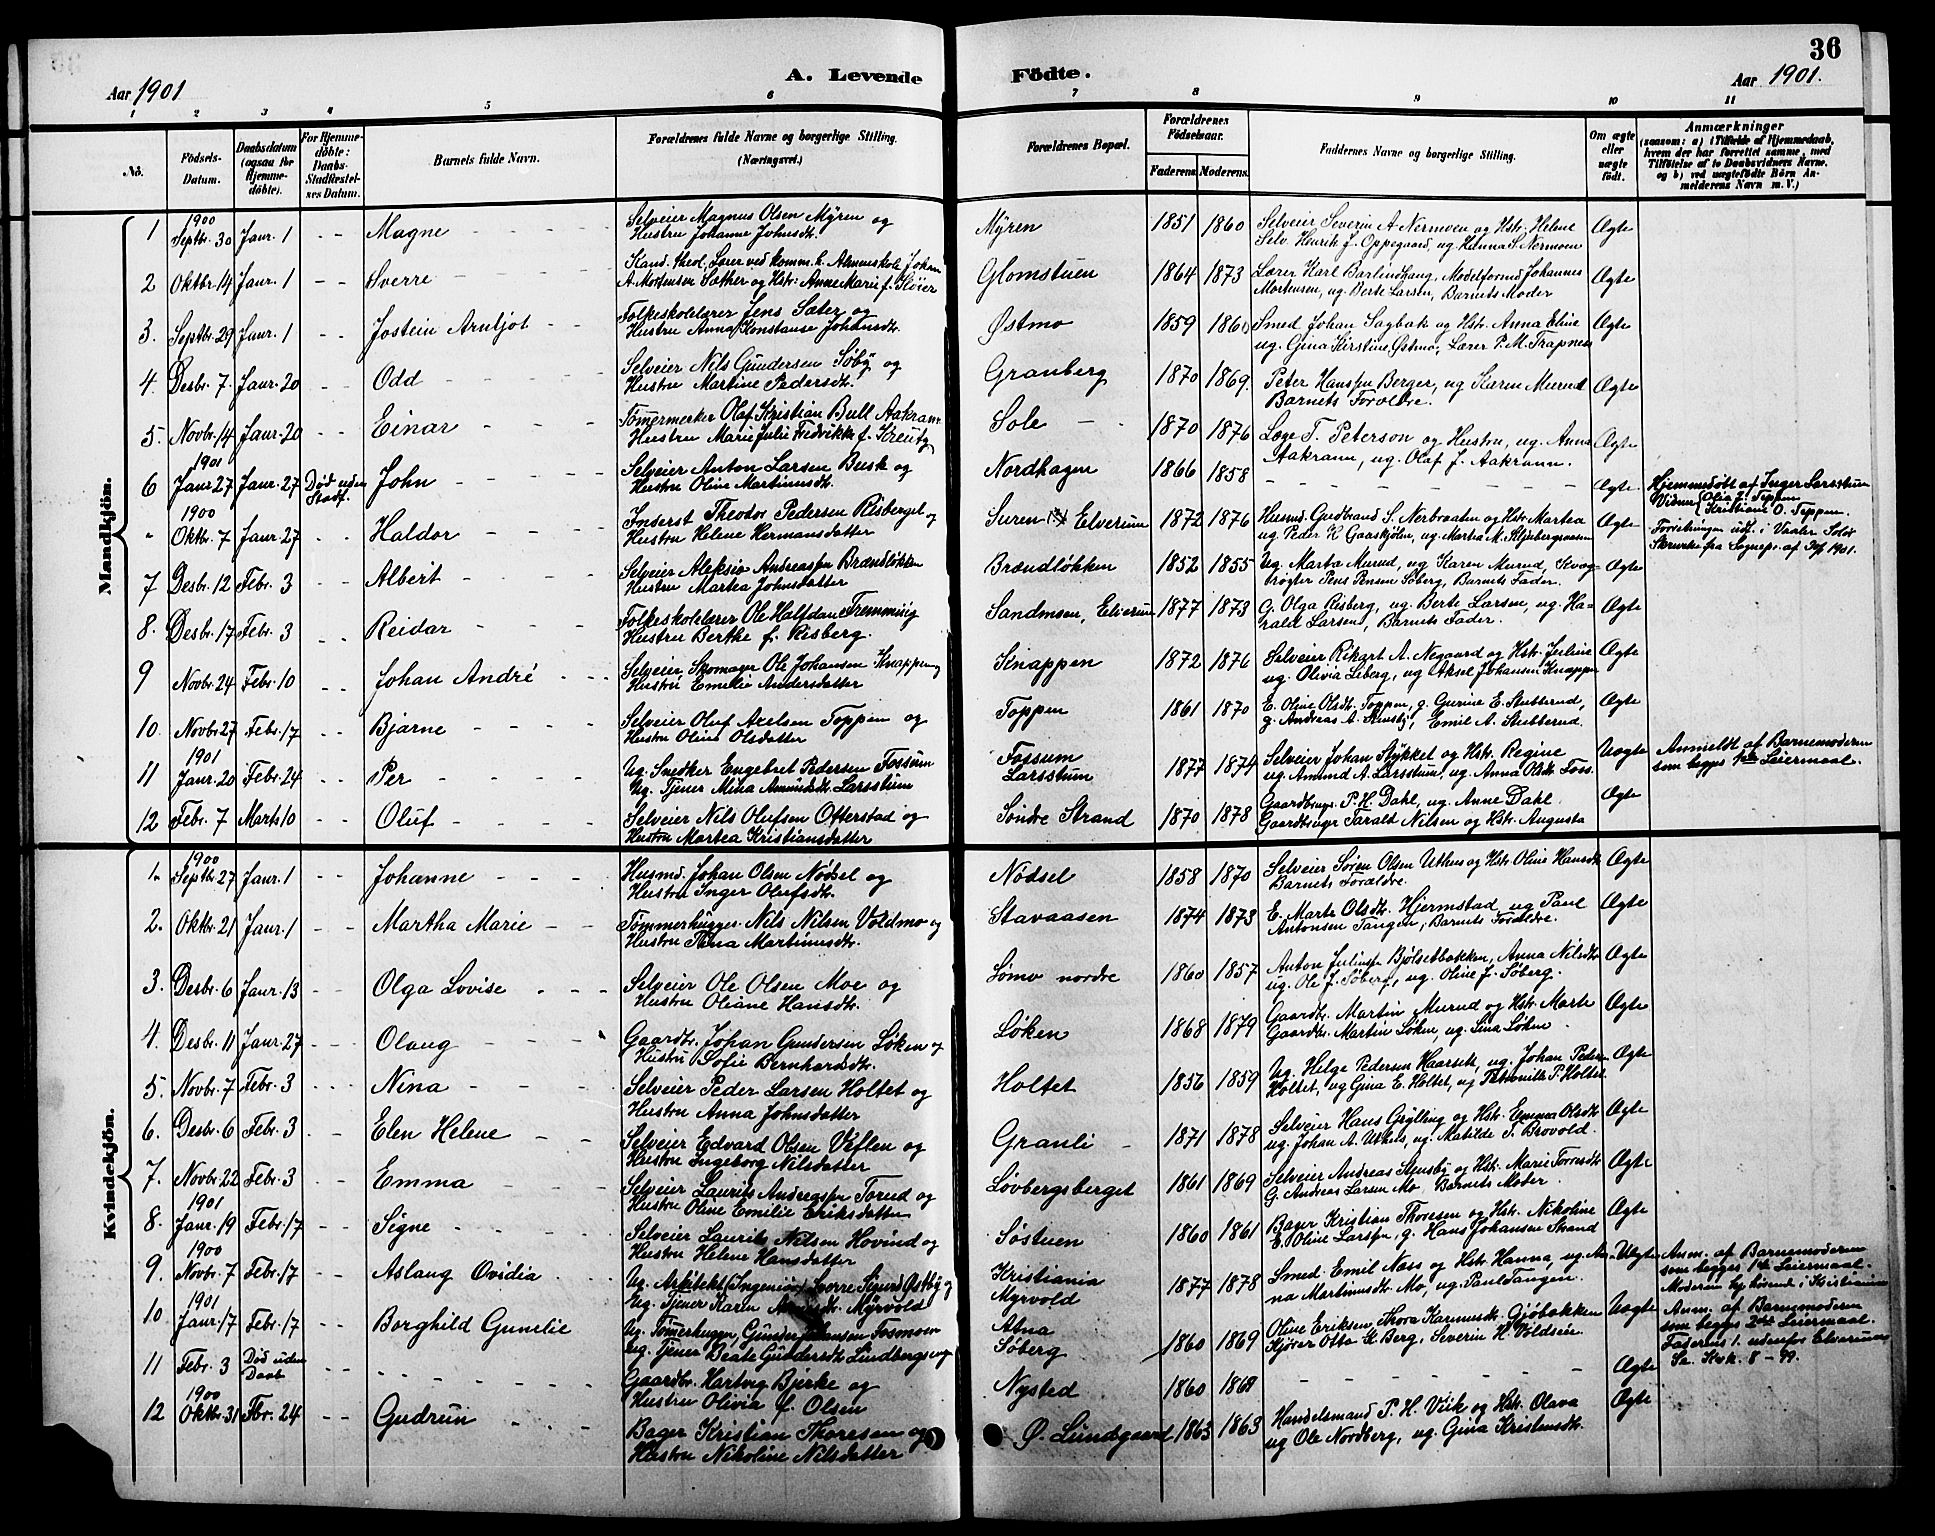 36
Aar 1901
A. Levende Födte.
Aar 1901.
1 2 3 4 5 6 7 8 9 10 11
No.
Födsels-Datum.
Daabsdatum (ogsaa for Hjemmedöbte).
For Hjemmedöbte: Daabs-Stadfestelses Datum.
Barnets fulde Navn.
Forældrenes fulde Navne og borgerlige Stilling. (Næringsvei.)
Forældrenes Bopæl.
Forældrenes Födselsaar.
Faderens Moderens
Faddernes Navne og borgerlige Stilling.
Om ægte eller uægte födt.
Anmærkninger
(saasom: a) i Tilfælde af Hjemmedaab, hvem der har forrettet samme, med Tilföielse af to Daabsvidners Navne, og b) ved uægtefödte Börn Anmelderens Navn m. V.)
Mandkjön.
1 1900 Septbr. 30 Janr. 1 - - Magne
Selveier Magnus Olsen Myren og
Hustru Johanne Johnsdt.
Myren 1851 1860
Selveier Severin A. Nermoen og Hstr. Helene
Selv. Henrik J. Oppegaard, ug. Hanna S. Nermoen
Ægte
2 Oktbr. 14 Janr. 1 - - Sverre
Kand. theol. Lærer ved komm. h. Almueskole Johan
A. Mortensen Sæther og Hstr. Anne Marie f. Sløier
Glomstuen 1864 1873
Lærer Karl Barlindhaug, Modelformd Johannes
Mortensen, ug. Berte Larsen, Barnets Moder
Ægte
3. Septbr. 29 Janr. 1 - - Jostein Arnljot
Folkeskolelærer Jens Sæter og
Hustru Anna Konstanse Johansdt.
Østmo 1859 1860
Smed Johan Sagbak og Hst. Anna Eline
ug. Gina Kirstine Østmo, Lærer P. M. Trapnes
Ægte
4. Desbr. 7. Janr. 20 - - Odd
Selveier Nils Gundersen Søby og
Hustru Martine Pedersdt.
Granberg 1870 1869.
Peter Hansen Berger, ug. Karen Murud
Barnets Forældre.
Ægte
5. Novbr. 14 Janr. 20 - - Einar
Tømmermerker Olaf Kristian Bull Aakrann
Hustru Marie Julie Fredrikke f. Kreutz
Sole 1870 1876
Læge T. Peterson og Hustru, ug. Anna
Aakrann, ug. Olaf J. Aakrann.
Ægte
6 1901 Janr. 27 Janr. 27 Død uden Stadf. John
Selveier Anton Larsen Busk og
Hustru Oline Martinusdt.
Nordhagen 1866 1858
Ægte.
Hjemmedøbt af Inger Larsstuen
Vidner Olia J. Teppen
Kristiane O. Teppen.
" 1900 Oktbr. 7 Janr. 27 - - Haldor
Inderst Theodor Pedersen Risberget og
Hustru Helene Hermansdatter
Suren Elverum 1872 1876
Husmd. Gudbrand S. Nerbraaten og Hstr. Martea
ug Peder K. Gaaskjølen, ug. Martea M. Kljubergmoen
Ægte
Forretningen udf. i Vaaler Solør
Skrivelse fra Sognepr. af 1901.
7 Desbr. 12 Febr. 3 - - Albert
Selveier Aleksis Andreassen Brændløkken
Hustru Martea Johnsdatter
Brændløkken 1852 1855
Ug. Marta Murud, ug Karen Murud, Skog-
røgter Pens Pensen Søberg, Barnets Fader.
Ægte
8. Desbr. 17 Febr. 3 - - Reidar
Folkeskolelærer Ole Halfdan Fremming
Hustru Berthe f. Risberg.
Sandmoen, Elverum 1877 1873
G. Olga Risberg, ug. Berte Larsen, ug. Ha-
rald Larsen, Barnets Fader.
Ægte
9 Novbr. 24 Febr. 10 - - Johan André
Selveier Skomager Ole Johansen Knappen og
Hustru Emilie Andersdatter
Knappen 1872 1876
Selveier Rikart A. Negaard og Hst. Juline
ug. Olivia Leberg, ug Aksel Johansen Knappen
Ægte
10. Novbr. 27 Febr. 17 - - Bjarne
Selveier Oluf Axelsen Toppen og
Hustru Oline Olsdatter
Toppen 1861 1870
E. Oline Olsdt. Toppen, g. Gurine E. Stubberud,
g. Andreas A. Stensby, Emil A. Stubberud.
Ægte
11 1901 Janr. 20 Febr. 24 - - Per
Ug. Snedker Engebret Pedersen Fossum
Ug. Tjener Mina Amundsdt. Larsstuen
Fossum
Larsstuen
1877 1874
Selveier Johan Stykket og Hst. Regine
ug. Amund A. Larsstuen, ug. Anna Olsdt. Foss.
Uægte
Anmeldt af Barnemoderen
som begges 1ste Leiermaal.
12 Febr. 7 Marts 10 - - Oluf
Selveier Nils Olufsen Otterstad og
Hustru Martea Kristiansdatter
Søndre Strand 1870 1878
Gaardbruger P. H. Dahl, ug. Anne Dahl.
Gaardbruger Tarald Nilsen og Hstr. Augusta
Ægte
Kvindekjön.
1. 1900 Septbr. 27 Janr. 1 - - Johanne
Husmd. Johan Olsen Nødsel og
Hustru Inger Olufsdt.
Nødsel 1858 1870
Selveier Søren Olsen Uthus og Hstr Oline Hansdt.
Barnets Forældre.
Ægte
2. Oktbr. 21 Janr. 1 - - Martha Marie
Tømmerhugger Nils Nilsen Voldmo og
Hustru Tina Martinusdt.
Stavaasen 1874 1873
E. Marte Olsdt. Hjermstad, ug Paul
Antonsen Tangen, Barnets Forældre.
Ægte
3. Desbr. 6 Janr. 13 - - Olga Lovise
Selveier Ole Olsen Moe og
Hustru Oliane Hansdt.
Sømo nordre 1860 1857
Anton Juliussen Bjølsetbakken, Anna Nilsdt.
ug. Ole J. Søberg, ug. Oline J. Søberg.
Ægte
4. Desbr. 11 Janr. 27 - - Olaug
Gaardbr. Johan Gundersen Løken og
Hustru Sofie Bernhardsdt.
Løken 1868 1879
Gaardbr. Martin Murud og Hstr. Marte
Gaardbr. Martin Løken, ug. Lina Løken
Ægte
5. Novbr. 7 Febr. 3 - - Nina
Selveier Peder Larsen Holtet og
Hustru Anna Johnsdatter
Holtet 1856 1859
Ug. Helge Pedersen Haarseth, ug. Johan Peders.
Holtet, ug Gina E. Holtet, ug Petronille P. Holtet.
Ægte
6. Desbr. 6 Febr. 3 - - Elen Helene
Selveier Edvard Olsen Veflen og
Hustru Ingeborg Nilsdatter
Granli 1871 1878
Selveier Hans Grylling og Hst. Emma Olsdt.
ug. Johan A. Uthus, ug. Matilde T. Brovold.
Ægte
7. Novbr. 22 Febr. 3 - - Emma
Selveier Laurits Andreassen Torud og
Hustru Oline Emilie Eriksdatter
Løvbergsberget 1861 1869
Selveier Andreas Stensby og Hst. Marie Torresdt.
G. Andreas Larsen Mo. Barnets Moder.
Ægte
8. 1901 Janr. 19 Febr. 17 - - Signe
Selveier Laurits Nilsen Hovind og
Hustru Helene Hansdatter
Søstuen 1860 1861
Bager Kristian Thoresen og Hst. Nikoline
E. Oline Larssen, g. Hans Johansen Strand
Ægte
9. 1900 Novbr. 7 Febr. 17 - - Aslaug Ovidia
Ug. Arkitekt (Ingeniør) Sverre Sigurd Østby og
Ug. Tjener Karen Myrvold
Kristiania
Myrvold
1877 1878
Smed Emil Næss og Hst. Hanna, ug. An-
na Martinusdt. Mo, ug. Paul Tangen.
Uægte
Anm. af Barnemoderen
som begges 1ste Leiermaal.
Moderen hjhørend i Kristiania
10 1901 Janr. 17 Febr. 17 - - Borghild Gunelie
Ug. Tømmerhugger Gunder Johansen Fosmoen
Ug. Tjener Beate Gundersdt. Lindbergseng
Atna
Søberg
1860 1869
Oline Eriksen, Thora Karinusdt. Gjøbakken
Kjører Otto K. Berg, Severin H. Voldsein.
Uægte
Anm. af Barnemoderen
som begges 2det Leiermaal.
Faderens 1. udenfor Elverum,
Se. Kvk. 8 - 99.
11 Febr. 3 Død uden Daab
Gaardbr. Hartvig Bjerke og
Hustru Olivia f. Olsen
Nysted 1860 1868
Ægte
12 1900 Oktbr. 31 Fbr. 24 - - Gudrun
Bager Kristian Thoresen og
Hustru Nikoline Nilsdatter
Ø. Lundsgaard 1863 1863
Handelsmand P. H. Viik og Hst. Olava
ug Ole Nordberg, ug. Gina Kristensdt.
Ægte